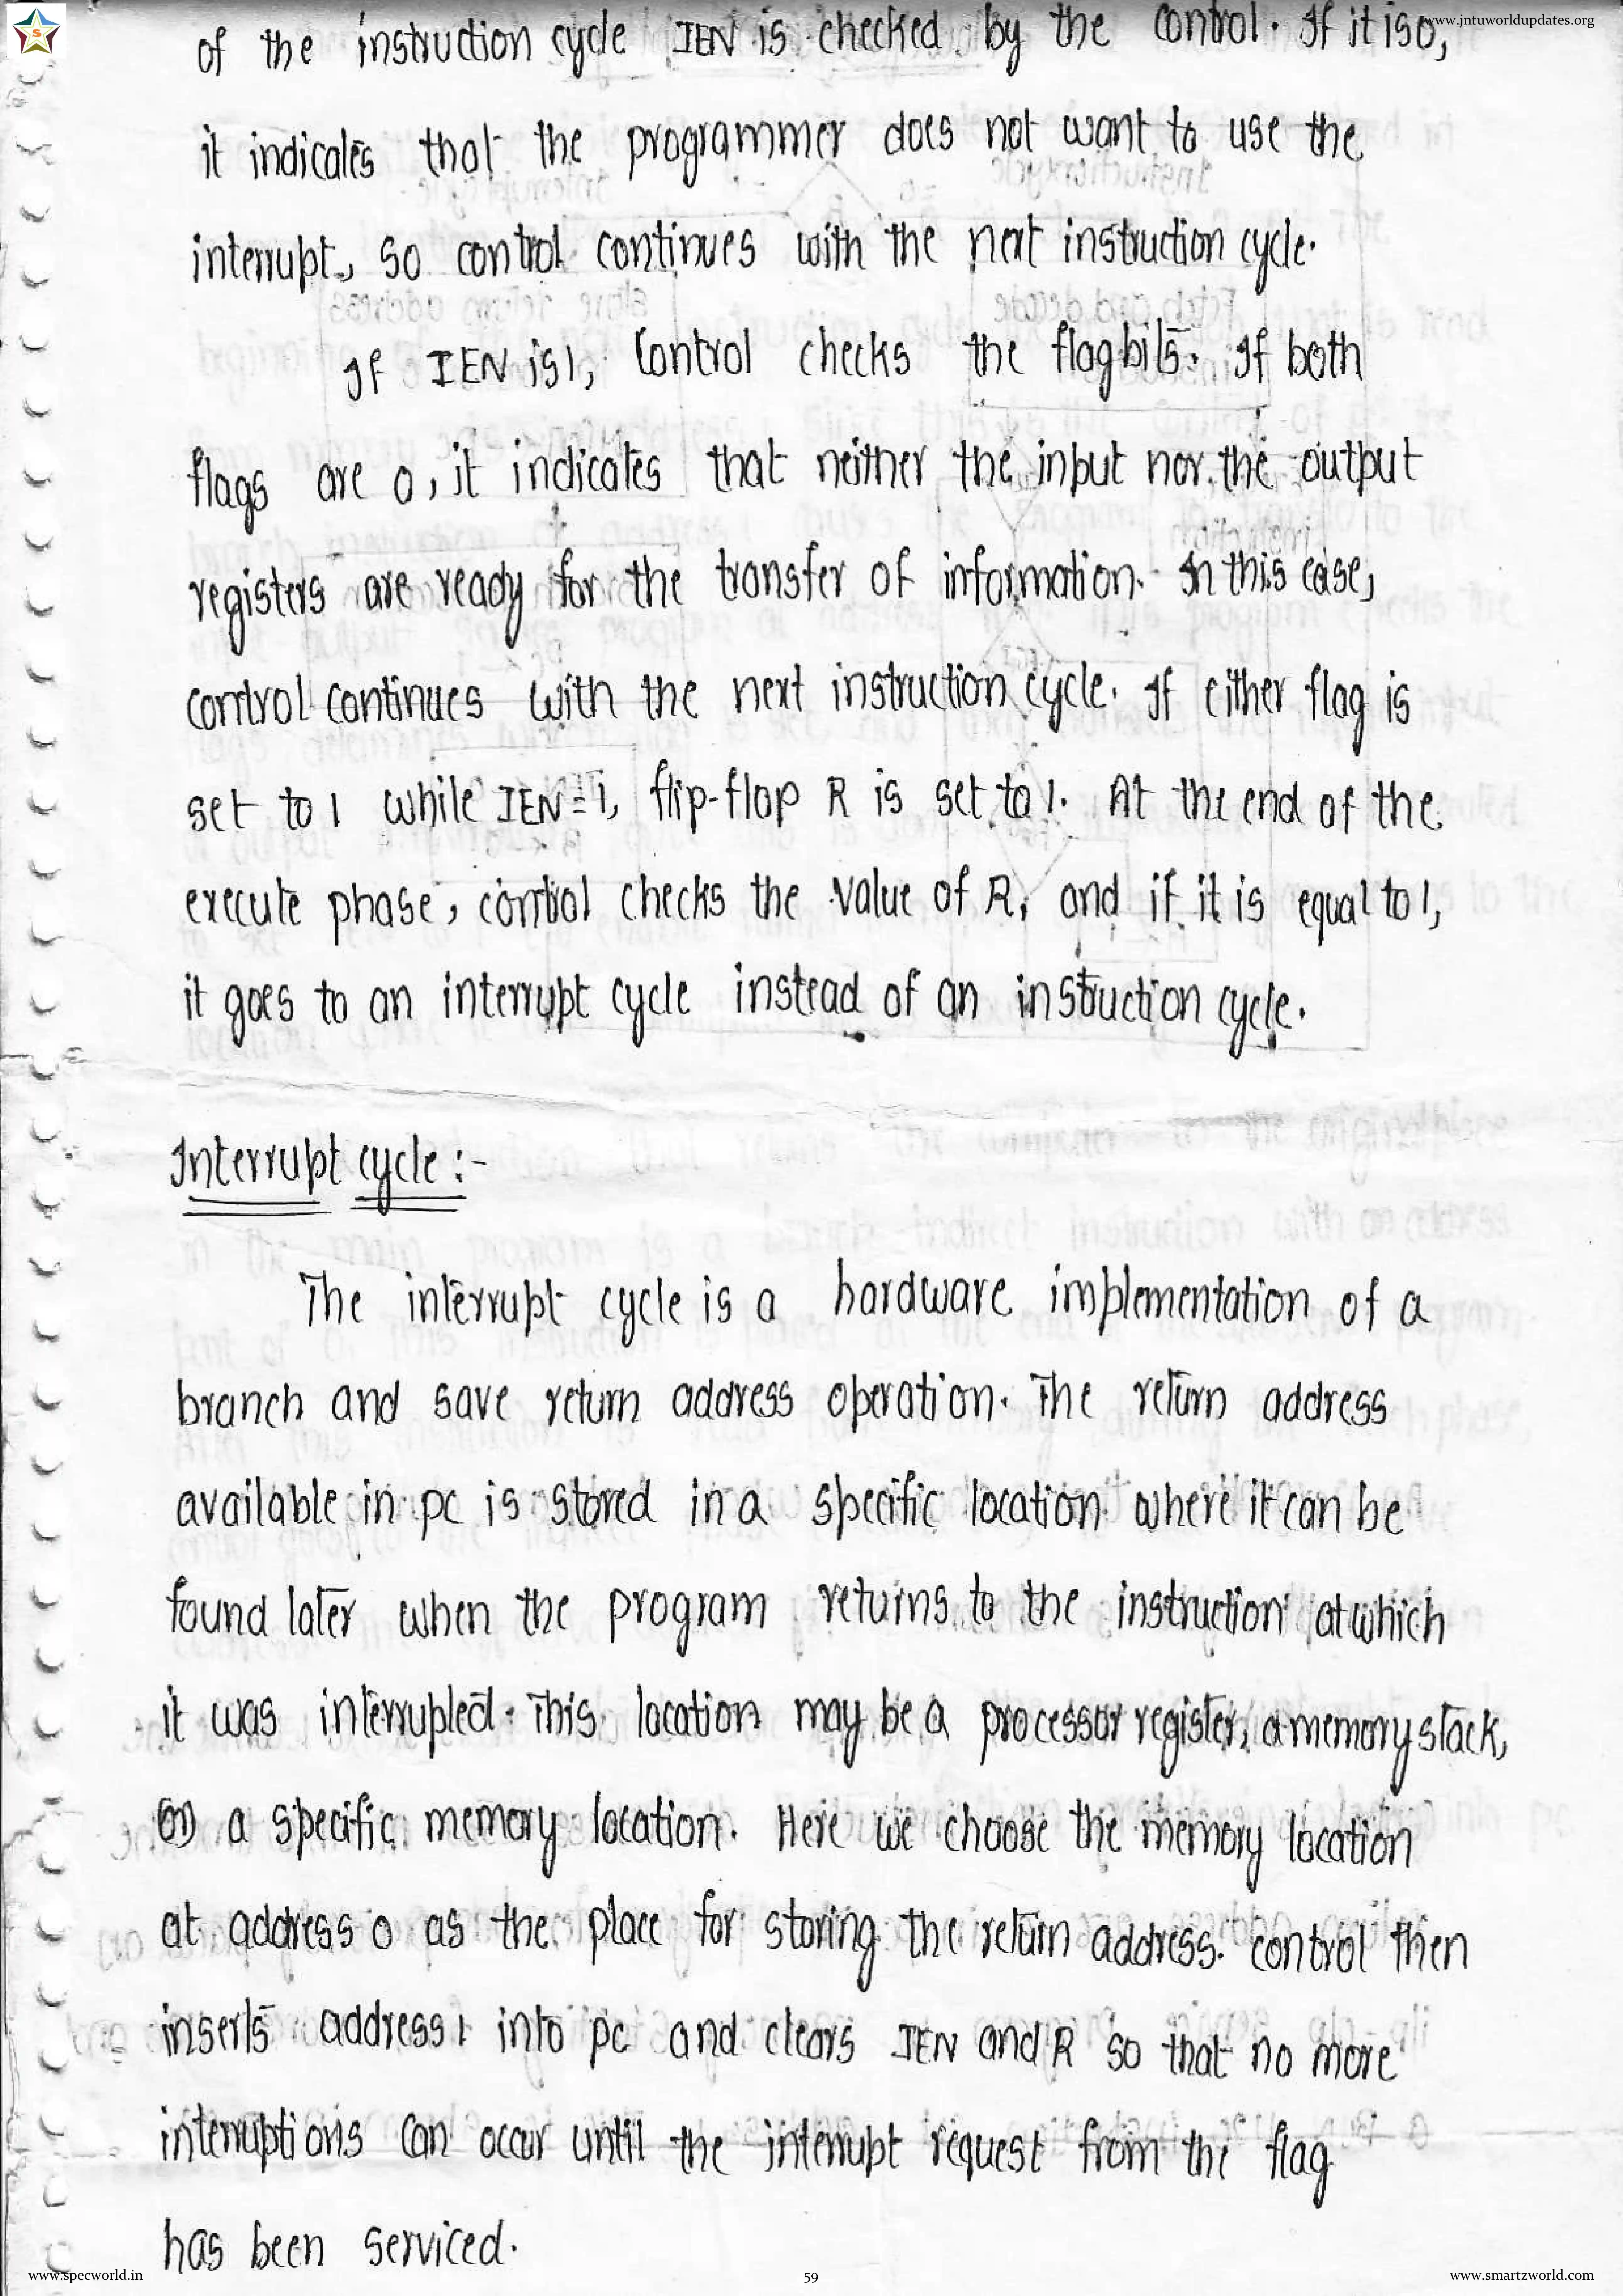 www.jntuworldupdates.org
of the instruction cycle IEN is checked by the control. If it is 0,
it indicates that the programmer does not want to use the
interrupt, so control continues with the next instruction cycle.
If IEN is 1, Control checks the flag bits. If both
flags are 0, it indicates that neither the input nor the output
registers are ready for the transfer of information. In this case,
control continues with the next instruction cycle. If either flag is
set to 1 while IEN=1, flip-flop R is set to 1. At the end of the
execute phase, control checks the value of R, and if it is equal to 1,
it goes to an interrupt cycle instead of an instruction cycle.
Interrupt cycle :-
The interrupt cycle is a hardware implementation of a
branch and save return address operation. The return address
available in pc is stored in a specific location where it can be
found later when the program returns to the instruction at which
it was interrupted. This location may be a processor register, a memory stack,
(or) a specific memory location. Here we choose the memory location
at address 0 as the place for storing the return address. control then
inserts address 1 into pc and clears IEN and R so that no more
interruptions can occur until the interrupt request from the flag
has been serviced.
www.specworld.in
59
www.smartzworld.com